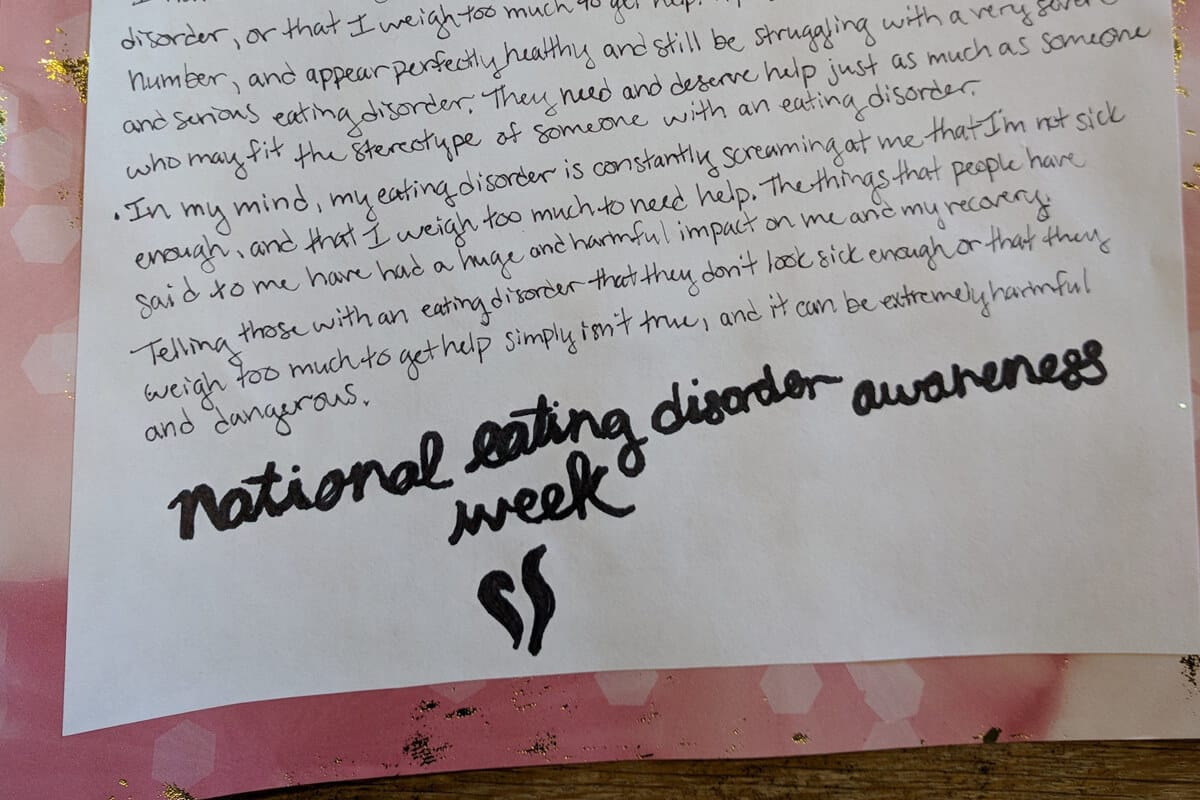 disorder, or that I weigh too much to get help.
number, and appear perfectly healthy and still be struggling with a very severe
and serious eating disorder. They need and deserve help just as much as someone
who may fit the stereotype of someone with an eating disorder.
• In my mind, my eating disorder is constantly screaming at me that I'm not sick
enough, and that I weigh too much to need help. The things that people have
said to me have had a huge and harmful impact on me and my recovery.
Telling those with an eating disorder that they don't look sick enough or that they
weigh too much to get help simply isn't true, and it can be extremely harmful
and dangerous.
national eating disorder awareness
week